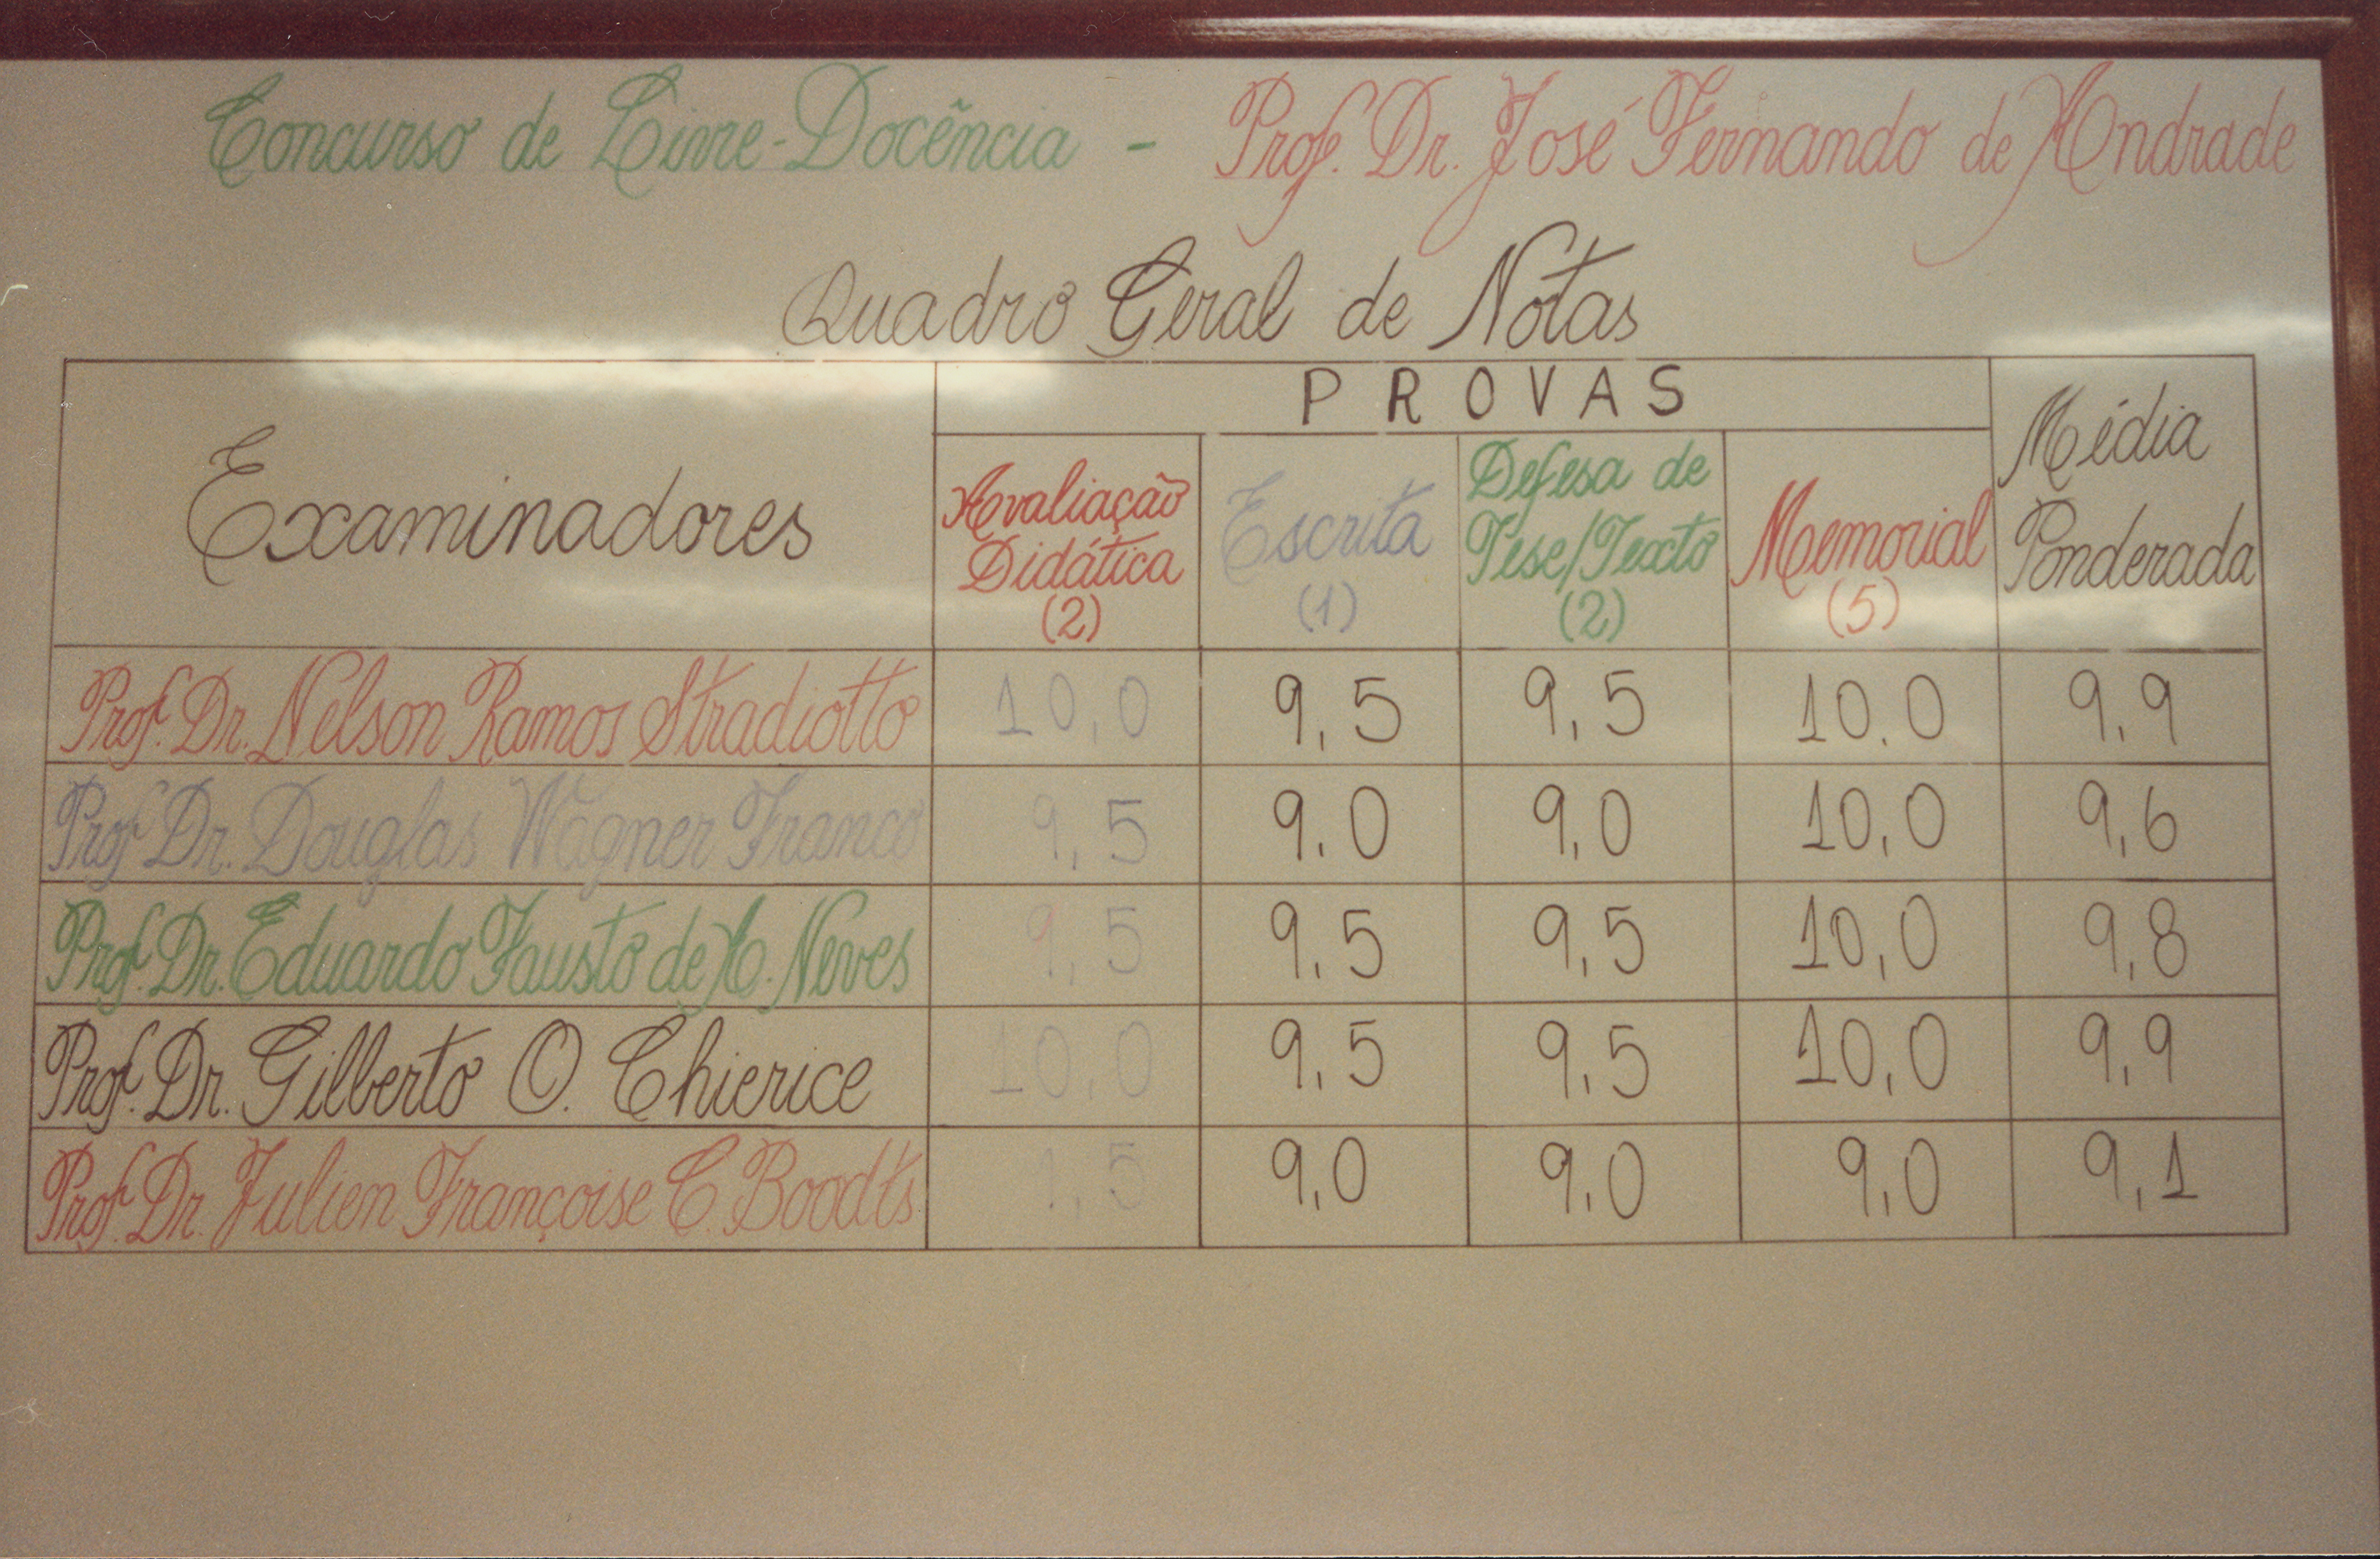 Concurso de Livre-Docência - Prof. Dr. José Fernando de Andrade
Quadro Geral de Notas
Examinadores
PROVAS
Média
Ponderada
Avaliação
Didática
(2)
Escrita
(1)
Defesa de
Tese/Texto
(2)
Memorial
(5)
Prof. Dr. Nelson Ramos Stradiotto 10,0 9,5 9,5 10,0 9,9
Prof. Dr. Douglas Wagner Franco 9,5 9,0 9,0 10,0 9,6
Prof. Dr. Eduardo Fausto de A. Neves 9,5 9,5 9,5 10,0 9,8
Prof. Dr. Gilberto O. Chierice 10,0 9,5 9,5 10,0 9,9
Prof. Dr. Julien Françoise C. Boodts 9,0 9,0 9,0 9,1